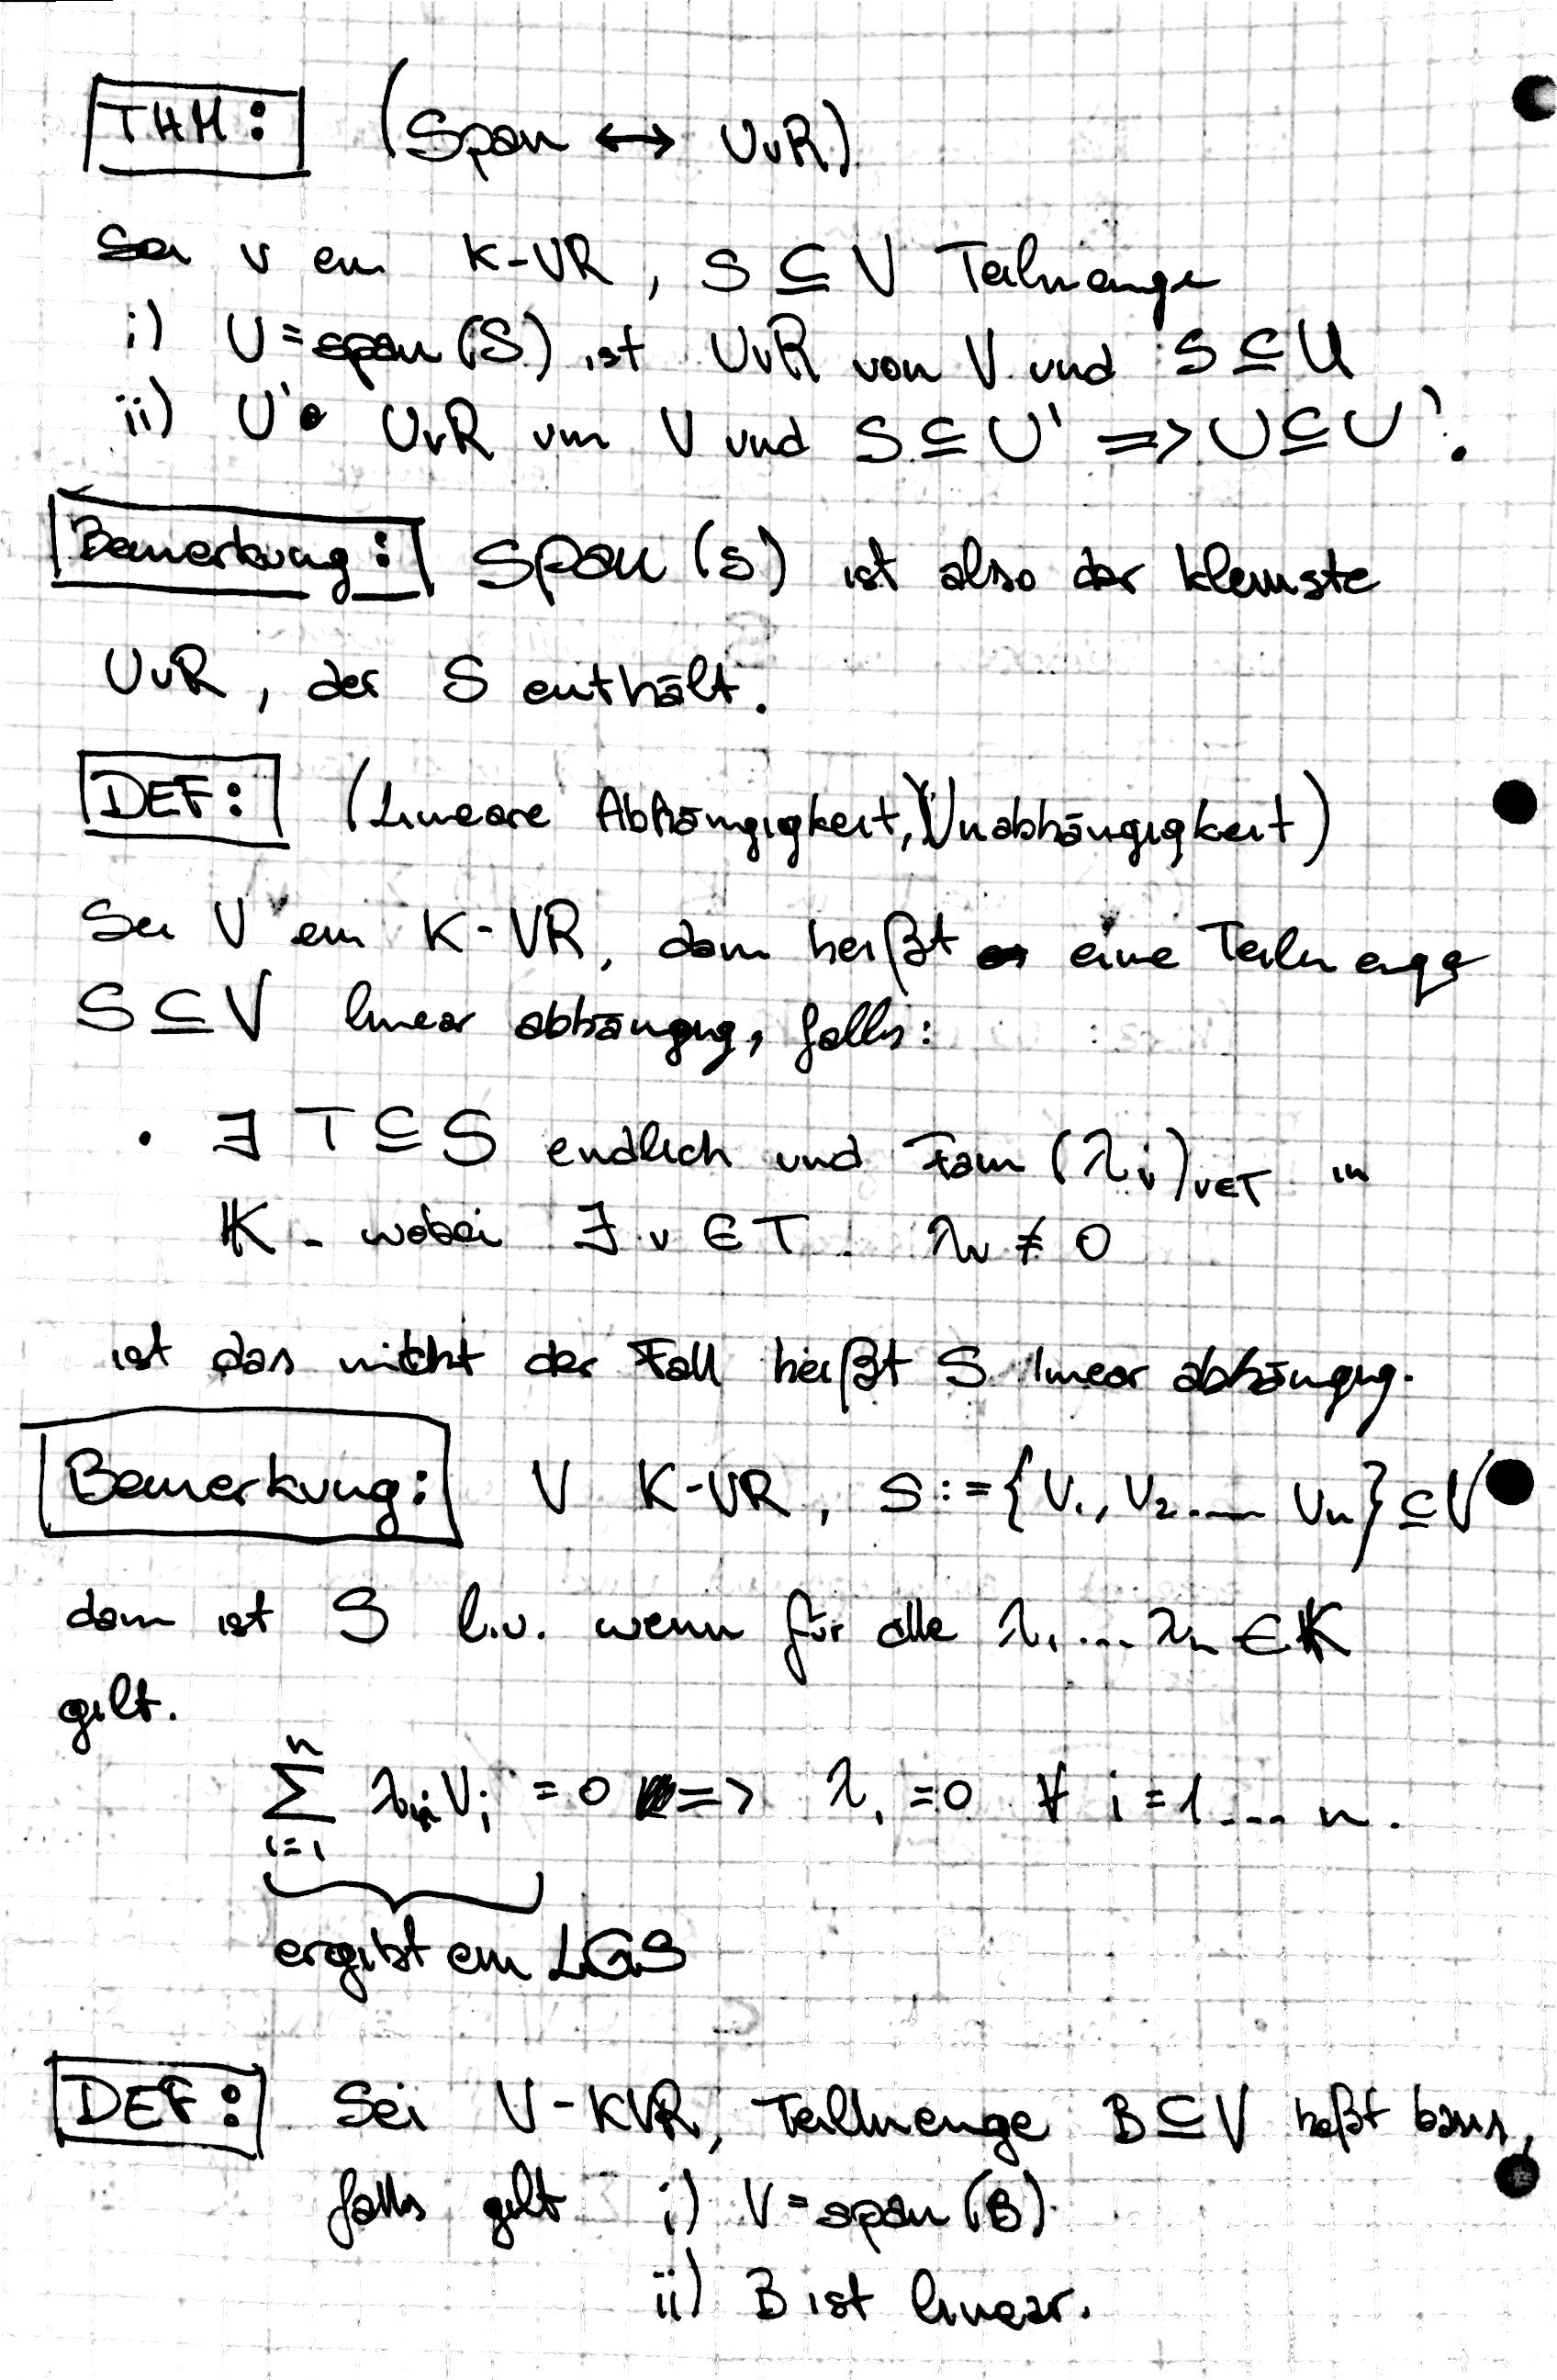 THM: (Span ↔ UvR)
Sei V ein K-VR, S ⊆ V Teilmenge
i) U = span(S) ist UvR von V und S ⊆ U
ii) U' UvR von V und S ⊆ U' => U ⊆ U'.
Bemerkung: Span(S) ist also der kleinste
UvR, der S enthält.
DEF: (Lineare Abhängigkeit, Unabhängigkeit)
Sei V ein K-VR, dann heißt eine Teilmenge
S ⊆ V linear abhängig, falls:
• ∃ T ⊆ S endlich und Fam (λ_v)_{v∈T} in
K - wobei ∃ v ∈ T λ_v ≠ 0
ist das nicht der Fall heißt S linear abhängig.
Bemerkung: V K-VR, S := {V_1, V_2 .... V_n} ⊆ V
dann ist S l.u. wenn für alle λ_1 .... λ_n ∈ K
gilt.
n
∑ λ_i V_i = 0 => λ_i = 0 ∀ i = 1 .... n.
i=1
ergibt ein LGS
DEF: Sei V-KVR, Teilmenge B ⊆ V heißt basis,
falls gilt i) V = span(B)
ii) B ist linear.